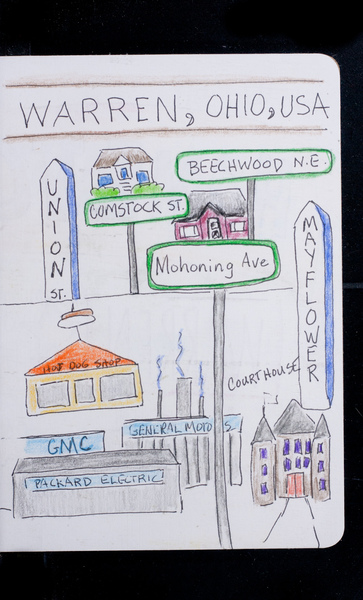 WARREN, OHIO, USA
BEECHWOOD N.E.
UNION ST.
COMSTOCK ST.
Mohoning Ave
MAYFLOWER
HOT DOG SHOP
COURTHOUSE
GENERAL MOTO S.
GMC
PACKARD ELECTRIC